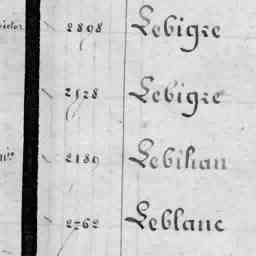 2898 Lebigre
2128 Lebigre
2189 Lebihan
2762 Leblanc